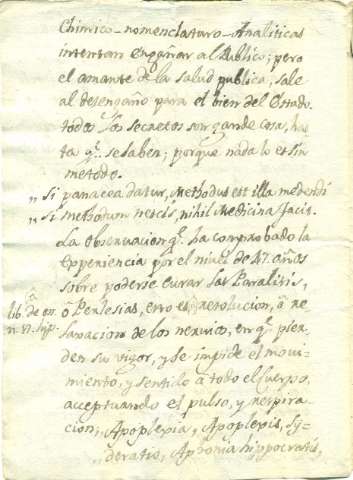 Chimico-nomenclaturo-Analiticas
intentan engañar al Publico; pero
el amante de la salud publica, sale
al desengaño para el bien del Estado.
todos los secretos son grande cosa, has
ta q.e se saben; porque nada lo es sin
metodo.
,, Si panacea datur, Methodus est illa medendi
,, Si methodum nescis, nihil Medicina facis.
La Observacion q.e ha comprobado la
Experiencia por el nivel de 47. años
sobre poderse curar las Paralisis,
ò Perlesias, esto es resolucion, ò re
laxacion de los nervios, en q.e pier
den su vigor, y se impide el movi-
miento, y sentido à todo el Cuerpo,
acceptuando el pulso, y respira
cion; Apoplexia, Apoplexis, Sy
deratio, Aphonia hippocratis,
lib. de